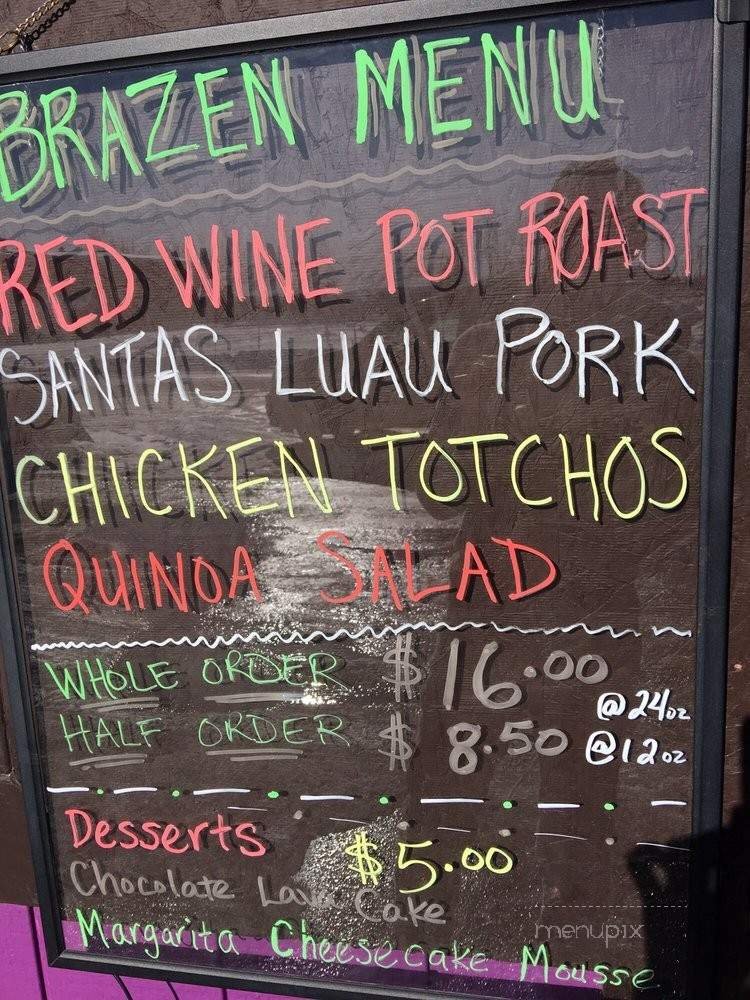 BRAZEN MENU
RED WINE POT ROAST
SANTAS LUAU PORK
CHICKEN TOTCHOS
QUINOA SALAD
WHOLE ORDER $16.00 @24oz
HALF ORDER $8.50 @12oz
Desserts $5.00
Chocolate Lava Cake
Margarita Cheesecake Mousse
menupix